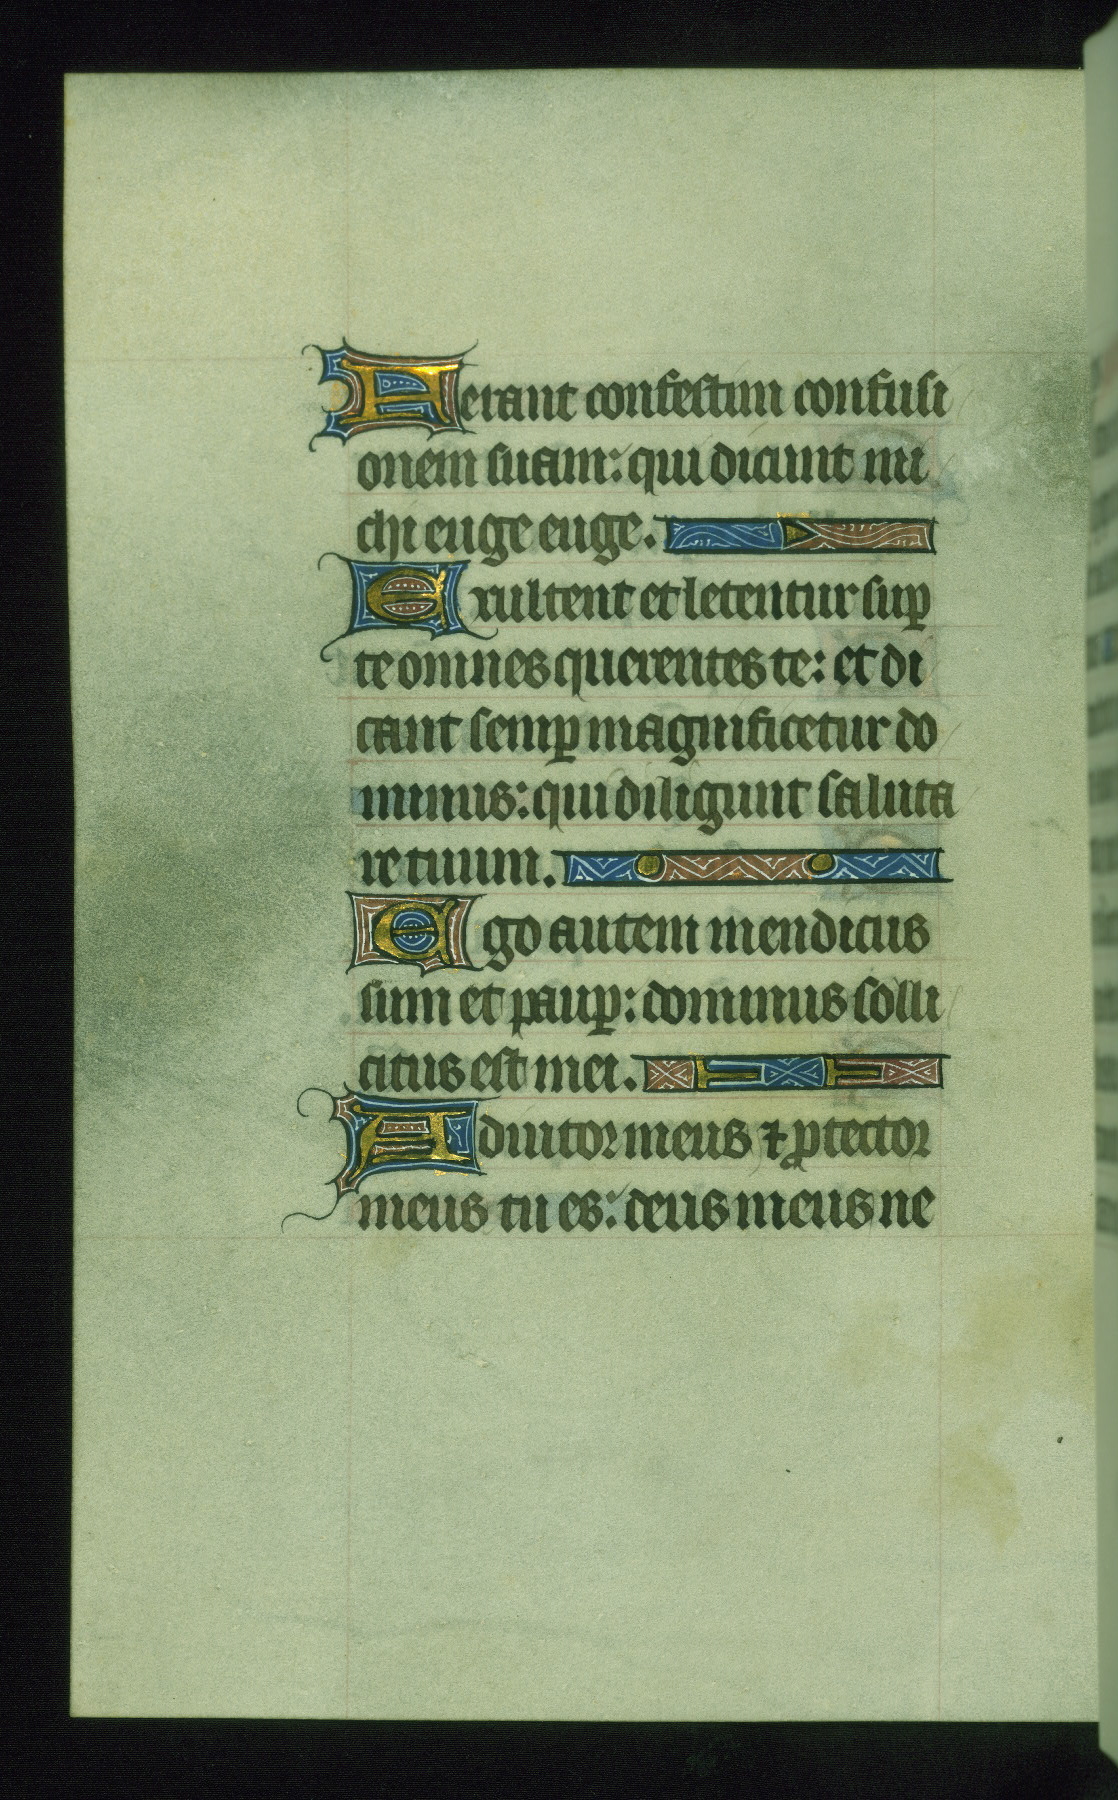 Aerant confestim confusi
onem suam: qui dicunt mi
chi euge euge.
Exultent et letentur suꝑ
te omnes querentes te: et di
cant semꝑ magnificetur do
minus: qui diligunt saluta
re tuum.
Ego autem mendicus
sum et pauꝑ: dominus solli
citus est mei.
Adiutor meus ⁊ ꝓtector
meus tu es: deus meus ne